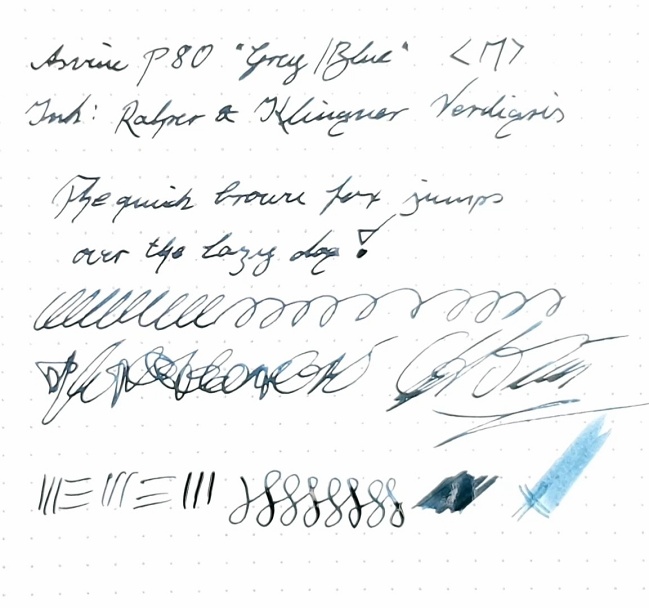 Asvine P80 "Grey/Blue" <M>
Ink: Rohrer & Klingner Verdigris
The quick brown fox jumps
over the lazy dog!